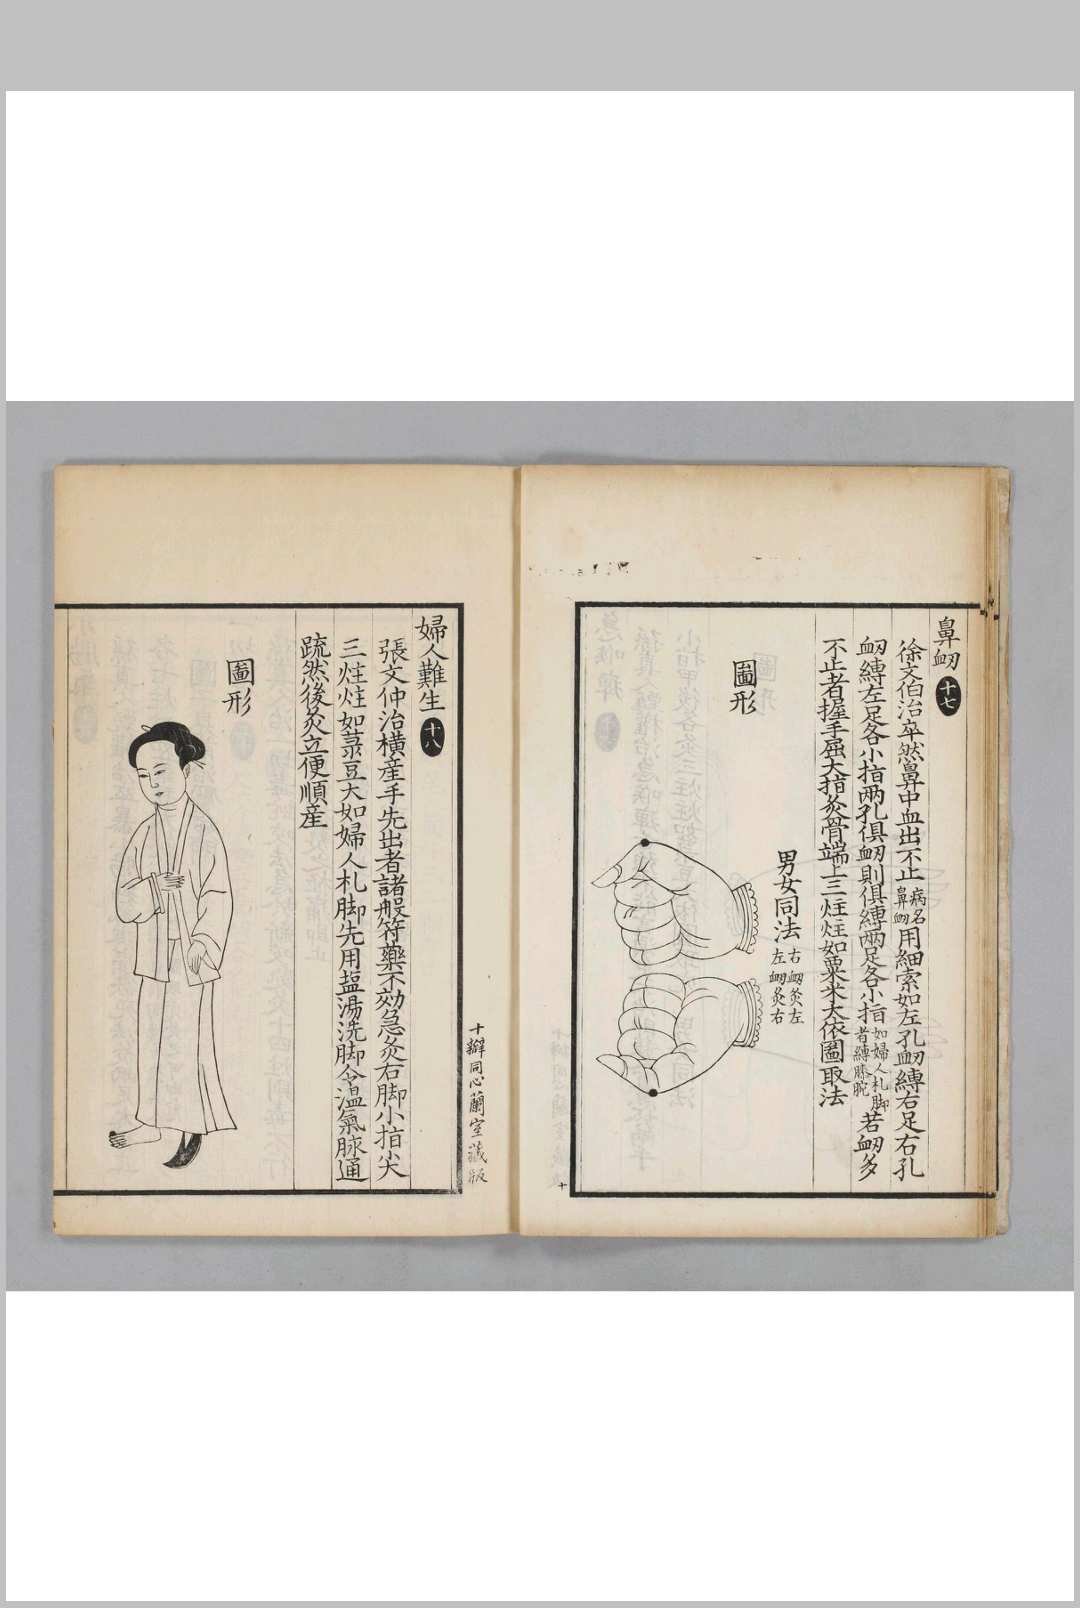 鼻衂 十七
徐文伯治卒然鼻中血出不止病名鼻衂用細索如左孔衂縛右足右孔
衂縛左足各小指兩孔俱衂則俱縛兩足各小指如婦人札脚者縛膝腕若衂多
不止者握手屈大指灸骨端上三炷炷如粟米大依圖取法
男女同法右衂灸左左衂灸右
圖形
十
十瓣同心蘭室藏版
婦人難生 十八
張文仲治橫產手先出者諸般符藥不効急灸右脚小指尖
三炷炷如菉豆大如婦人札脚先用盐湯洗脚令溫氣脉通
䟽然後灸立便順產
圖形